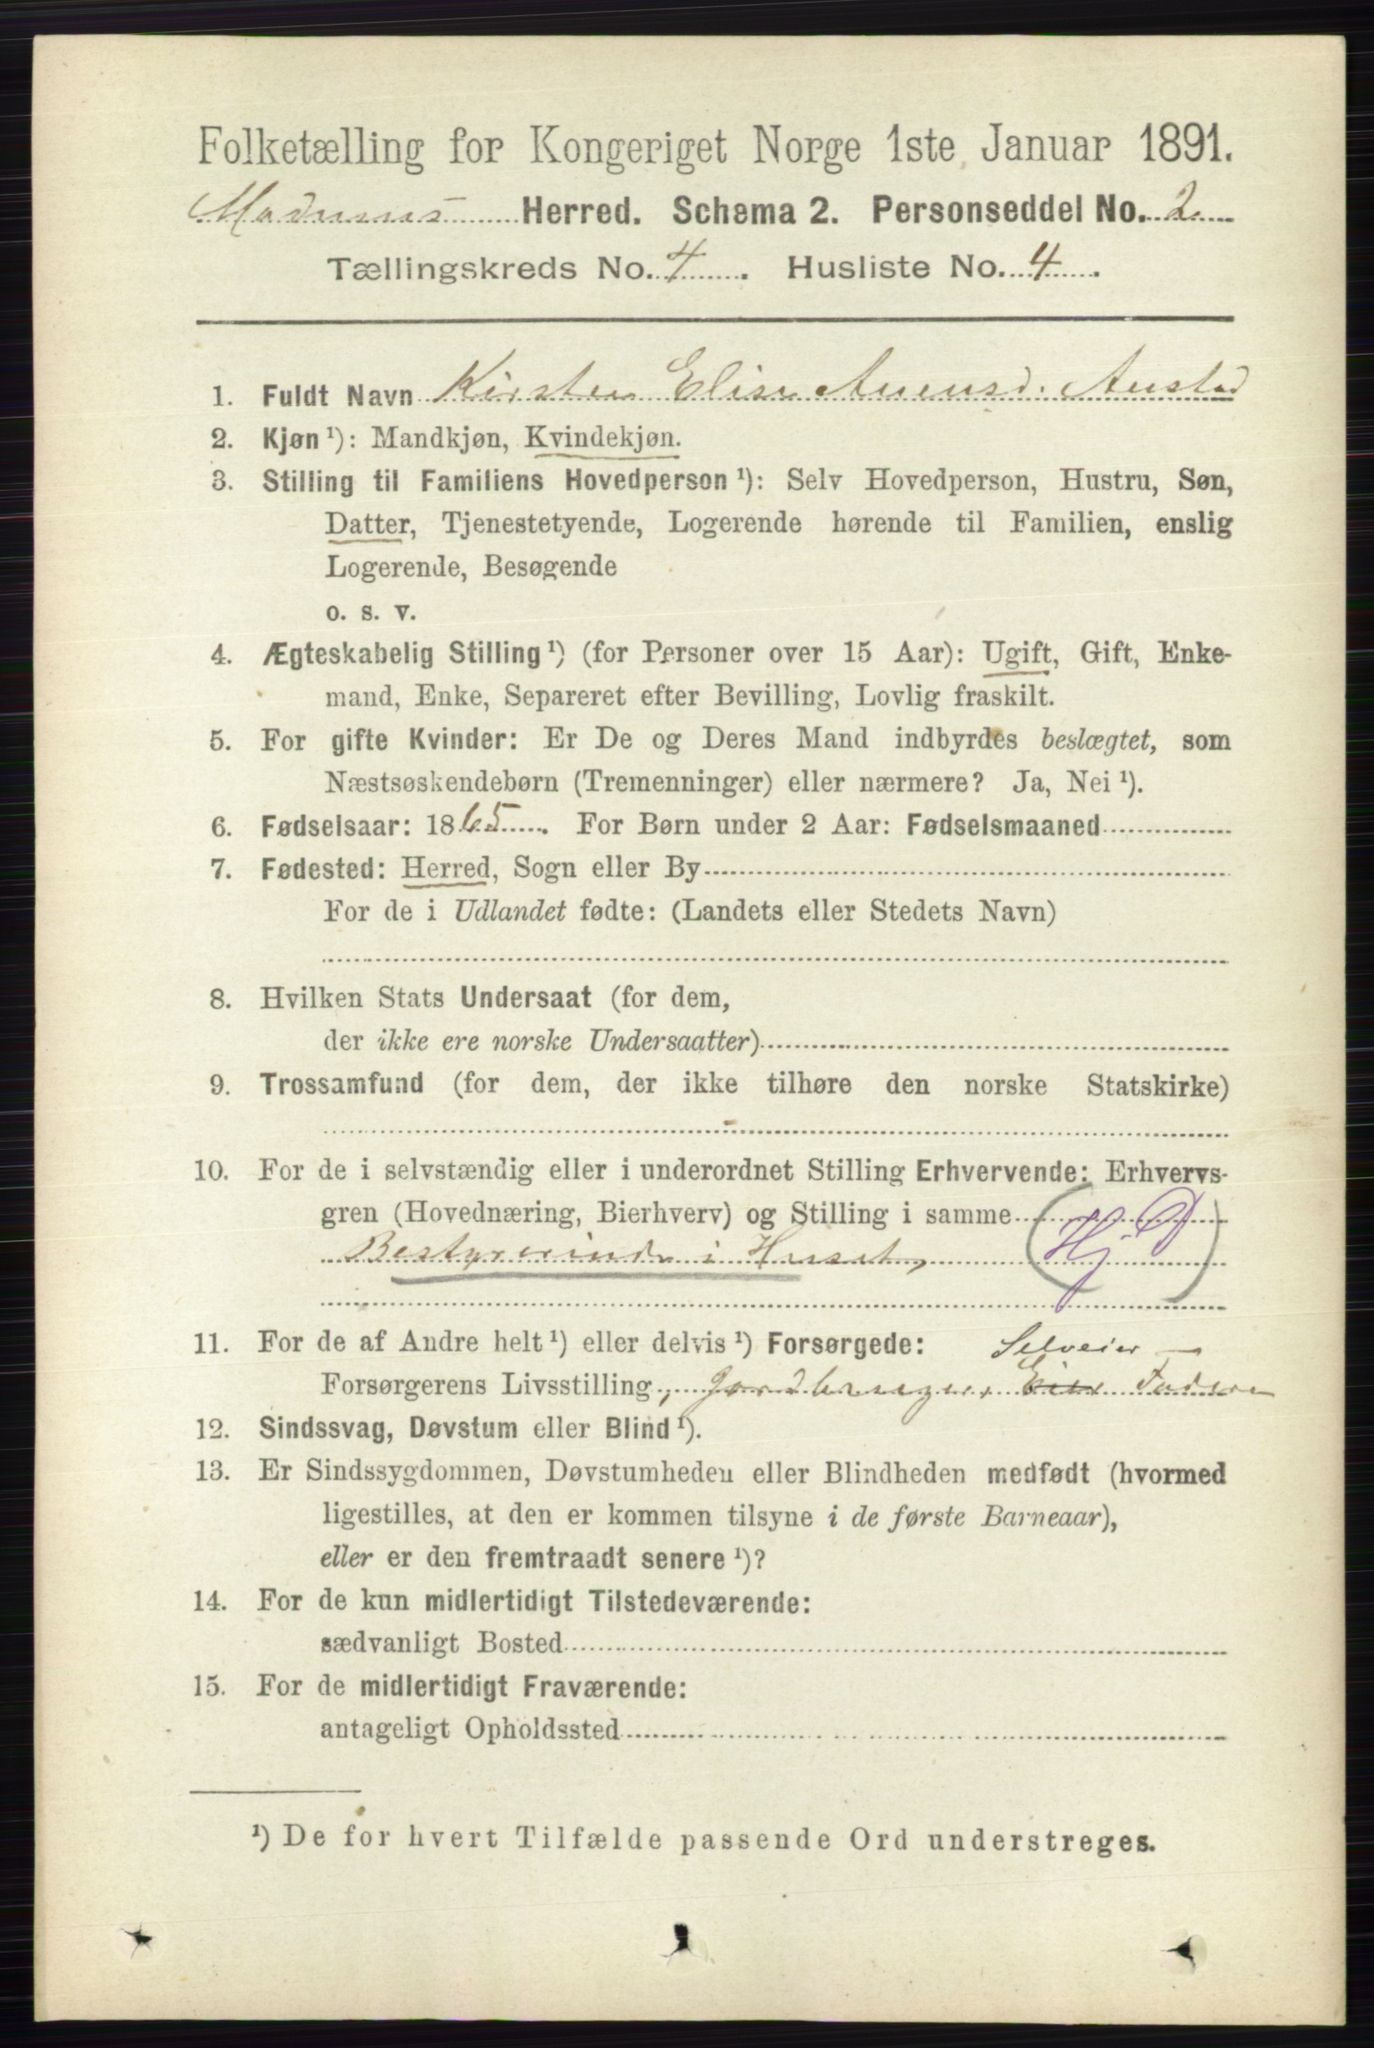 Folketælling for Kongeriget Norge 1ste Januar 1891.
Modums Herred. Schema 2. Personseddel No. 2
Tællingskreds No. 4. Husliste No. 4.
1. Fuldt Navn Kirsten Elise Auensd. Austad
2. Kjøn ¹): Mandkjøn, Kvindekjøn.
3. Stilling til Familiens Hovedperson ¹): Selv Hovedperson, Hustru, Søn,
Datter, Tjenestetyende, Logerende hørende til Familien, enslig
Logerende, Besøgende
o. s. v.
4. Ægteskabelig Stilling ¹) (for Personer over 15 Aar): Ugift, Gift, Enke-
mand, Enke, Separeret efter Bevilling, Lovlig fraskilt.
5. For gifte Kvinder: Er De og Deres Mand indbyrdes beslægtet, som
Næstsøskendebørn (Tremenninger) eller nærmere? Ja, Nei ¹).
6. Fødselsaar: 1865. For Børn under 2 Aar: Fødselsmaaned
7. Fødested: Herred, Sogn eller By
For de i Udlandet fødte: (Landets eller Stedets Navn)
8. Hvilken Stats Undersaat (for dem,
der ikke ere norske Undersaatter)
9. Trossamfund (for dem, der ikke tilhøre den norske Statskirke)
10. For de i selvstændig eller i underordnet Stilling Erhvervende: Erhvervs-
gren (Hovednæring, Bierhverv) og Stilling i samme
Bestyrerinde i Huset, (Hj D)
11. For de af Andre helt ¹) eller delvis ¹) Forsørgede: Selveier
Forsørgerens Livsstilling, Gardbruger, Eier Faderen
12. Sindssvag, Døvstum eller Blind ¹).
13. Er Sindssygdommen, Døvstumheden eller Blindheden medfødt (hvormed
ligestilles, at den er kommen tilsyne i de første Barneaar),
eller er den fremtraadt senere ¹)?
14. For de kun midlertidigt Tilstedeværende:
sædvanligt Bosted
15. For de midlertidigt Fraværende:
antageligt Opholdssted
¹) De for hvert Tilfælde passende Ord understreges.